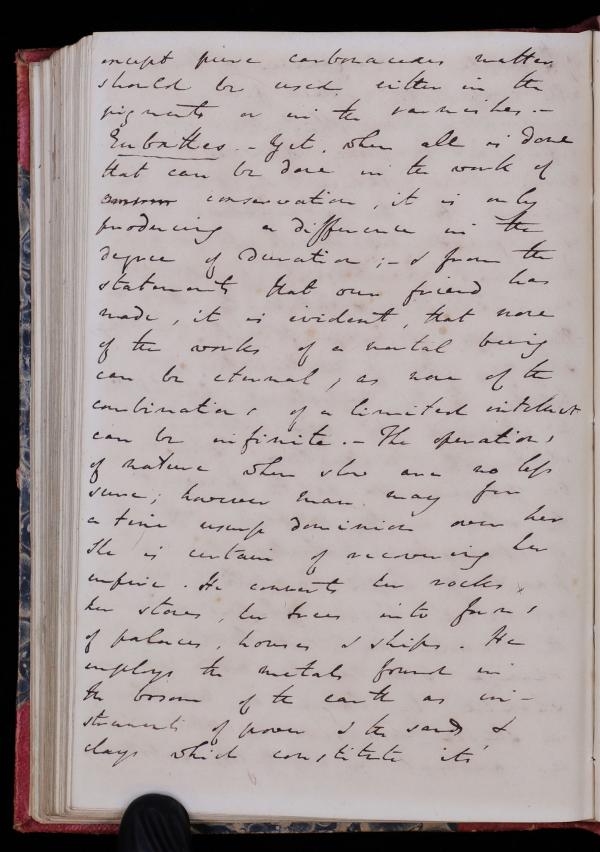 except pure carbonaceous matter
should be used either in the
pigments or in the varnishes. –
Eubathes. – Yet, when all is done
that can be done in the work of
conservation, it is only
producing a difference in the
degree of duration; – & from the
statements that our friend has
made, it is evident, that none
of the works of a mortal being
can be eternal, as none of the
combinations of a limited intellect
can be infinite. – The operations
of nature when slow are no less
sure; however man may for
a time usurp dominion over her
she is certain of recovering her
empire. He converts her rocks
her stones, her trees into forms
of palaces, houses & ships. He
employs the metals found in
the bosom of the earth as in-
struments of power & the sands &
clays which constitute its